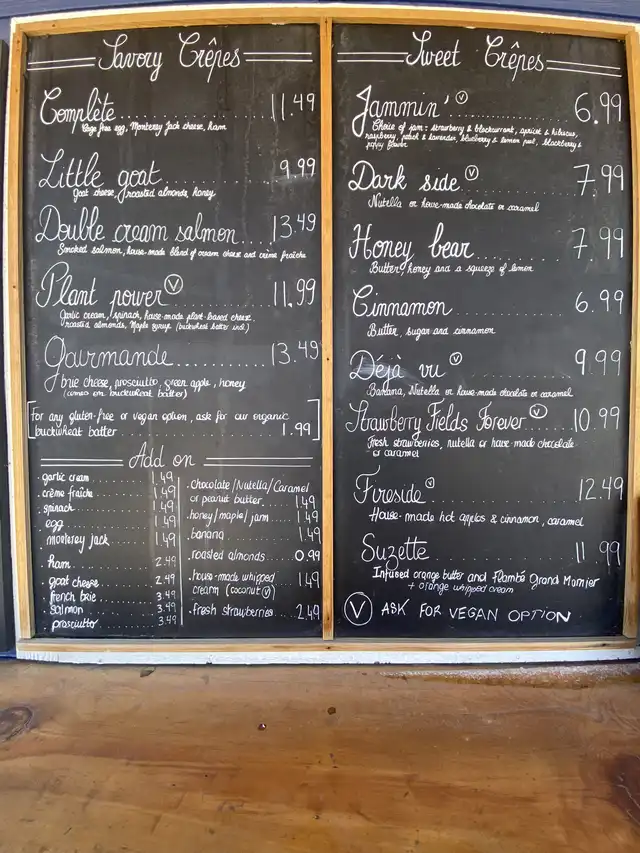 Savory Crêpes
Complète 11.49
Cage free egg, Monterey Jack cheese, ham
Little goat 9.99
Goat cheese, roasted almonds, honey
Double cream salmon 13.49
Smoked salmon, house-made blend of cream cheese and crème fraîche
Plant power Ⓥ 11.99
Garlic cream, spinach, house-made plant-based cheese,
roasted almonds, Maple syrup (buckwheat batter incl.)
Gourmande 13.49
brie cheese, prosciutto, green apple, honey
(comes on buckwheat batter)
[For any gluten-free or vegan option, ask for our organic
buckwheat batter 1.99]
Add on
.garlic cream 1.49
.crème fraîche 1.49
.spinach 1.49
.egg 1.49
.monterey jack 1.49
.ham 2.49
.goat cheese 2.49
.french brie 3.49
.salmon 3.49
.prosciutto 3.49
.chocolate/Nutella/Caramel
or peanut butter 1.49
.honey/maple/jam 1.49
.banana 1.49
.roasted almonds 0.99
.house-made whipped 1.49
cream (coconut Ⓥ)
.fresh strawberries 2.49
Sweet Crêpes
Jammin' Ⓥ 6.99
Choice of jam: strawberry & blackcurrant, apricot & hibiscus,
raspberry, peach & lavender, blueberry & lemon peel, blackberry &
poppy flower
Dark side Ⓥ 7.99
Nutella or house-made chocolate or caramel
Honey bear 7.99
Butter, honey and a squeeze of lemon
Cinnamon 6.99
Butter, sugar and cinnamon
Déjà vu Ⓥ 9.99
Banana, Nutella or house-made chocolate or caramel
Strawberry Fields Forever Ⓥ 10.99
Fresh strawberries, nutella or house-made chocolate
or caramel
Fireside Ⓥ 12.49
House-made hot apples & cinnamon, caramel
Suzette 11 99
Infused orange butter and Flambé Grand Marnier
+ orange whipped cream
Ⓥ ASK FOR VEGAN OPTION